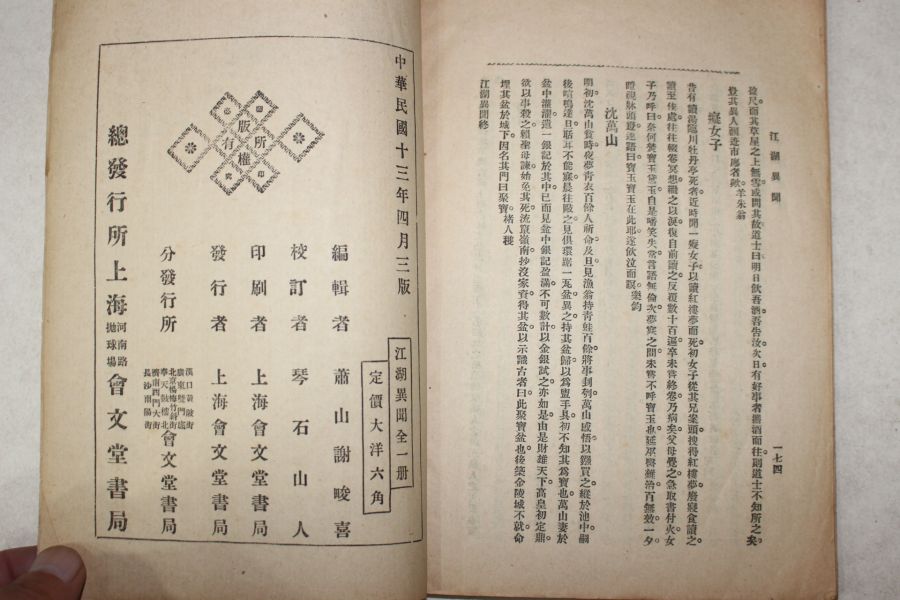 江湖異聞
一七四
盈尺而其草屋之上無雪或問其故道士曰明日飲吾酒吾告汝次日有好事者携酒而往則道士不知所之矣
豈其異人溷迹市廛者歟 羊朱翁
癡女子
昔有讀湯臨川牡丹亭死者近時聞一癡女子以讀紅樓夢而死初女子從其兄案頭搜得紅樓夢廢寢食讀之
讀至佳處往往輟卷冥想繼之以淚復自前讀之反覆數十百遍卒未嘗終卷乃病矣父母覺之急取書付火女
子乃呼曰奈何焚寶玉黛玉自是啼笑失常言語無倫次夢寐之間未嘗不呼寶玉也延巫醫雜治百無效一夕
瞪視牀頭燈連語曰寶玉寶玉在此耶遂飲泣而瞑 樂鈞
沈萬山
明初沈萬山貧時夜夢青衣百餘人祈命及旦見漁翁持青蛙百餘將事刲剔萬山感悟以鏹買之縱於池中嗣
後喧鳴達旦聒耳不能寐晨往敺之見俱環踞一瓦盆異之持其盆歸以為盥手具初不知其為寶也萬山妻於
盆中灌濯遺一銀記於其中已而見盆中銀記盈滿不可數計以金銀試之亦如是由是財雄天下高皇初定鼎
欲以事殺之賴聖母諫始免其死流竄嶺南抄沒家資得其盆以示識古者曰此聚寶盆也後築金陵城不就命
埋其盆於城下因名其門曰聚寶 褚人穫
江湖異聞終
中華民國十三年四月三版
版權所有
究印
江湖異聞全一册
定價大洋六角
編輯者 蕭山謝畯喜
校訂者 琴石山人
印刷者 上海會文堂書局
發行者 上海會文堂書局
分發行所
漢口黃陂街
廣東雙門底
北京楊梅竹斜街
奉天鼓樓北
濟南西門大街
長沙南陽街
會文堂書局
總發行所上海河南路拋球場會文堂書局